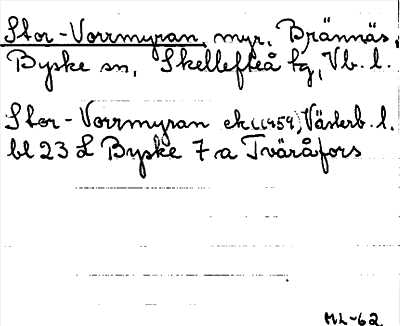 Stor-Vorrmyran, myr, Brännäs,
Byske sn, Skellefteå tg, Vb. l.
Stor-Vorrmyran ek (1959) Västerb. l.
bl 23 L Byske 7 a Tväråfors
ML-62